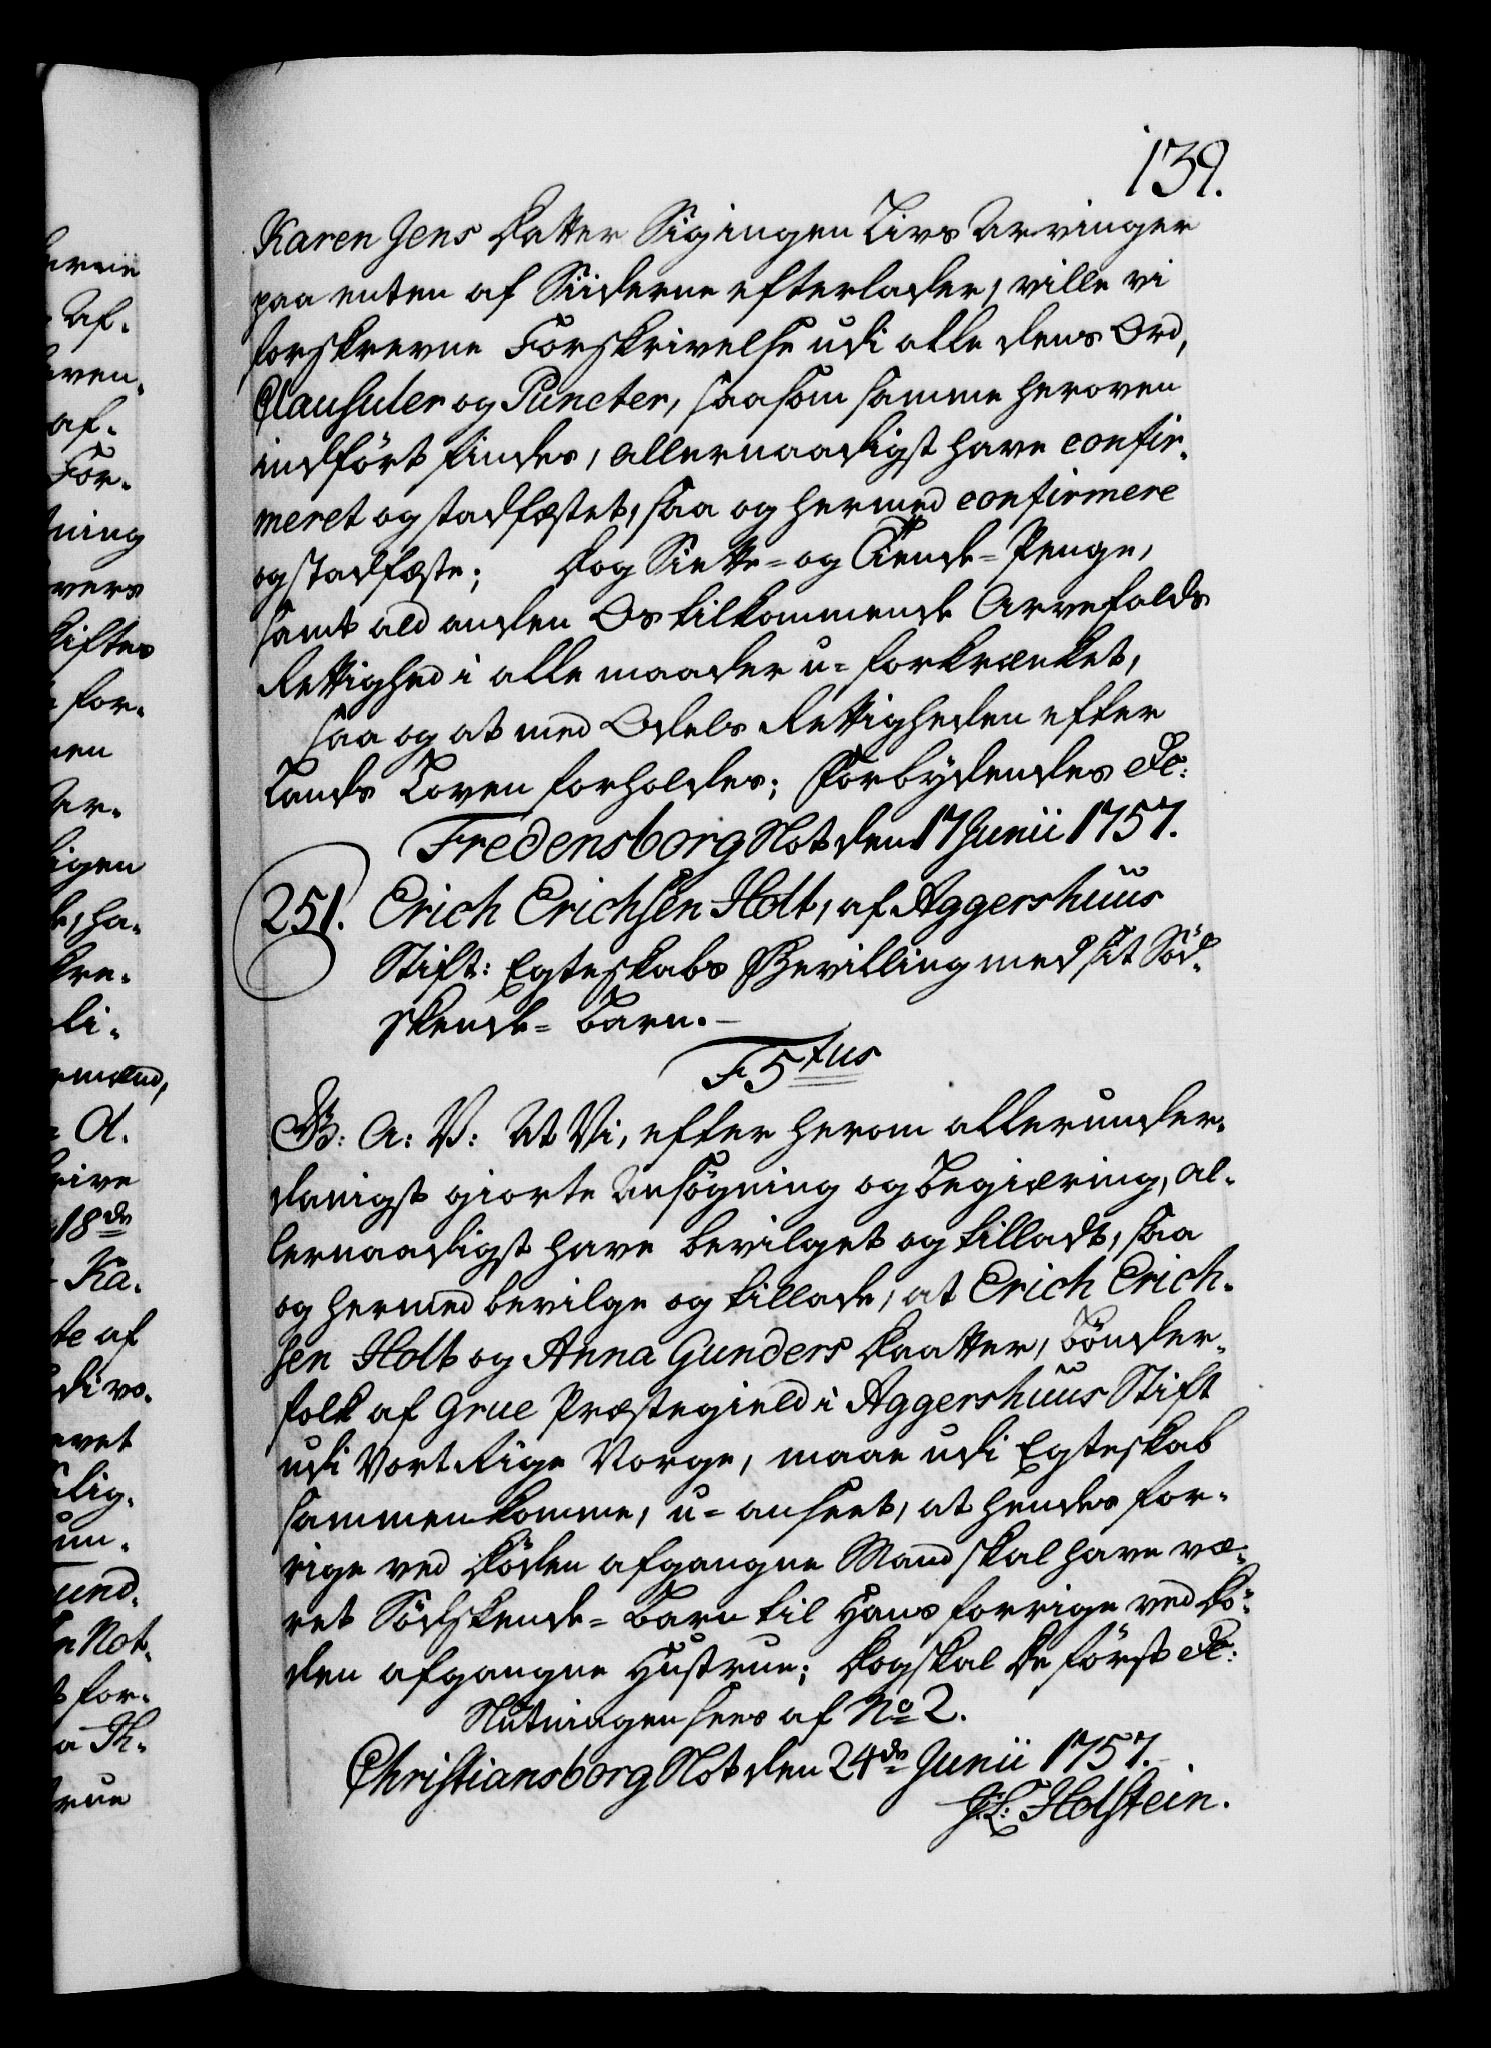 139.
Karen Jens Datter Sig ingen Livs Arvinger
paa enten af Siiderne efterlader, ville vi
forskrevne Forskrivelse udi alle dens Ord,
Clausuler og Puncter, saasom samme heroven
indført findes, allernaadigst have confir-
meret og stadfæstet, saa og hermed confirmere
og stadfæste; Dog Siette- og Tiende-Penge,
samt ald anden Os tilkommende Arvefalds
Rettighed i alle maader u-forkrænket,
saa og at med Odels Rettigheden efter
Lands Loven forholdes; Forbydendes &c:
Fredensborg Slot den 17 Junii 1757.
251. Erich Erichsen Holt, af Aggershuus
Stift: Egteskabs Bevilling med sit Sød-
skende-Barn.
F 5tus
G: A: V: At Vi, efter herom allerunder-
danigst giorte Ansøgning og Begiæring, al-
lernaadigst have bevilget og tilladt, saa
og hermed bevilge og tillade, at Erich Erich-
sen Holt og Anna Gunders Daatter, bønder-
folk af Grue Præstegield i Aggershuus Stift
udi Vort Rige Norge, maae udi Egteskab
sammenkomme, u-anseet, at hendes for-
rige ved Døden afgangne Mand skal have væ-
ret Sødskende-Barn til Hans forrige ved Dø-
den afgangne Hustrue; Dog skal de først &c:
Slutningen sees af No 2.
Christiansborg Slot den 24de Junii 1757.
J. L: Holstein.